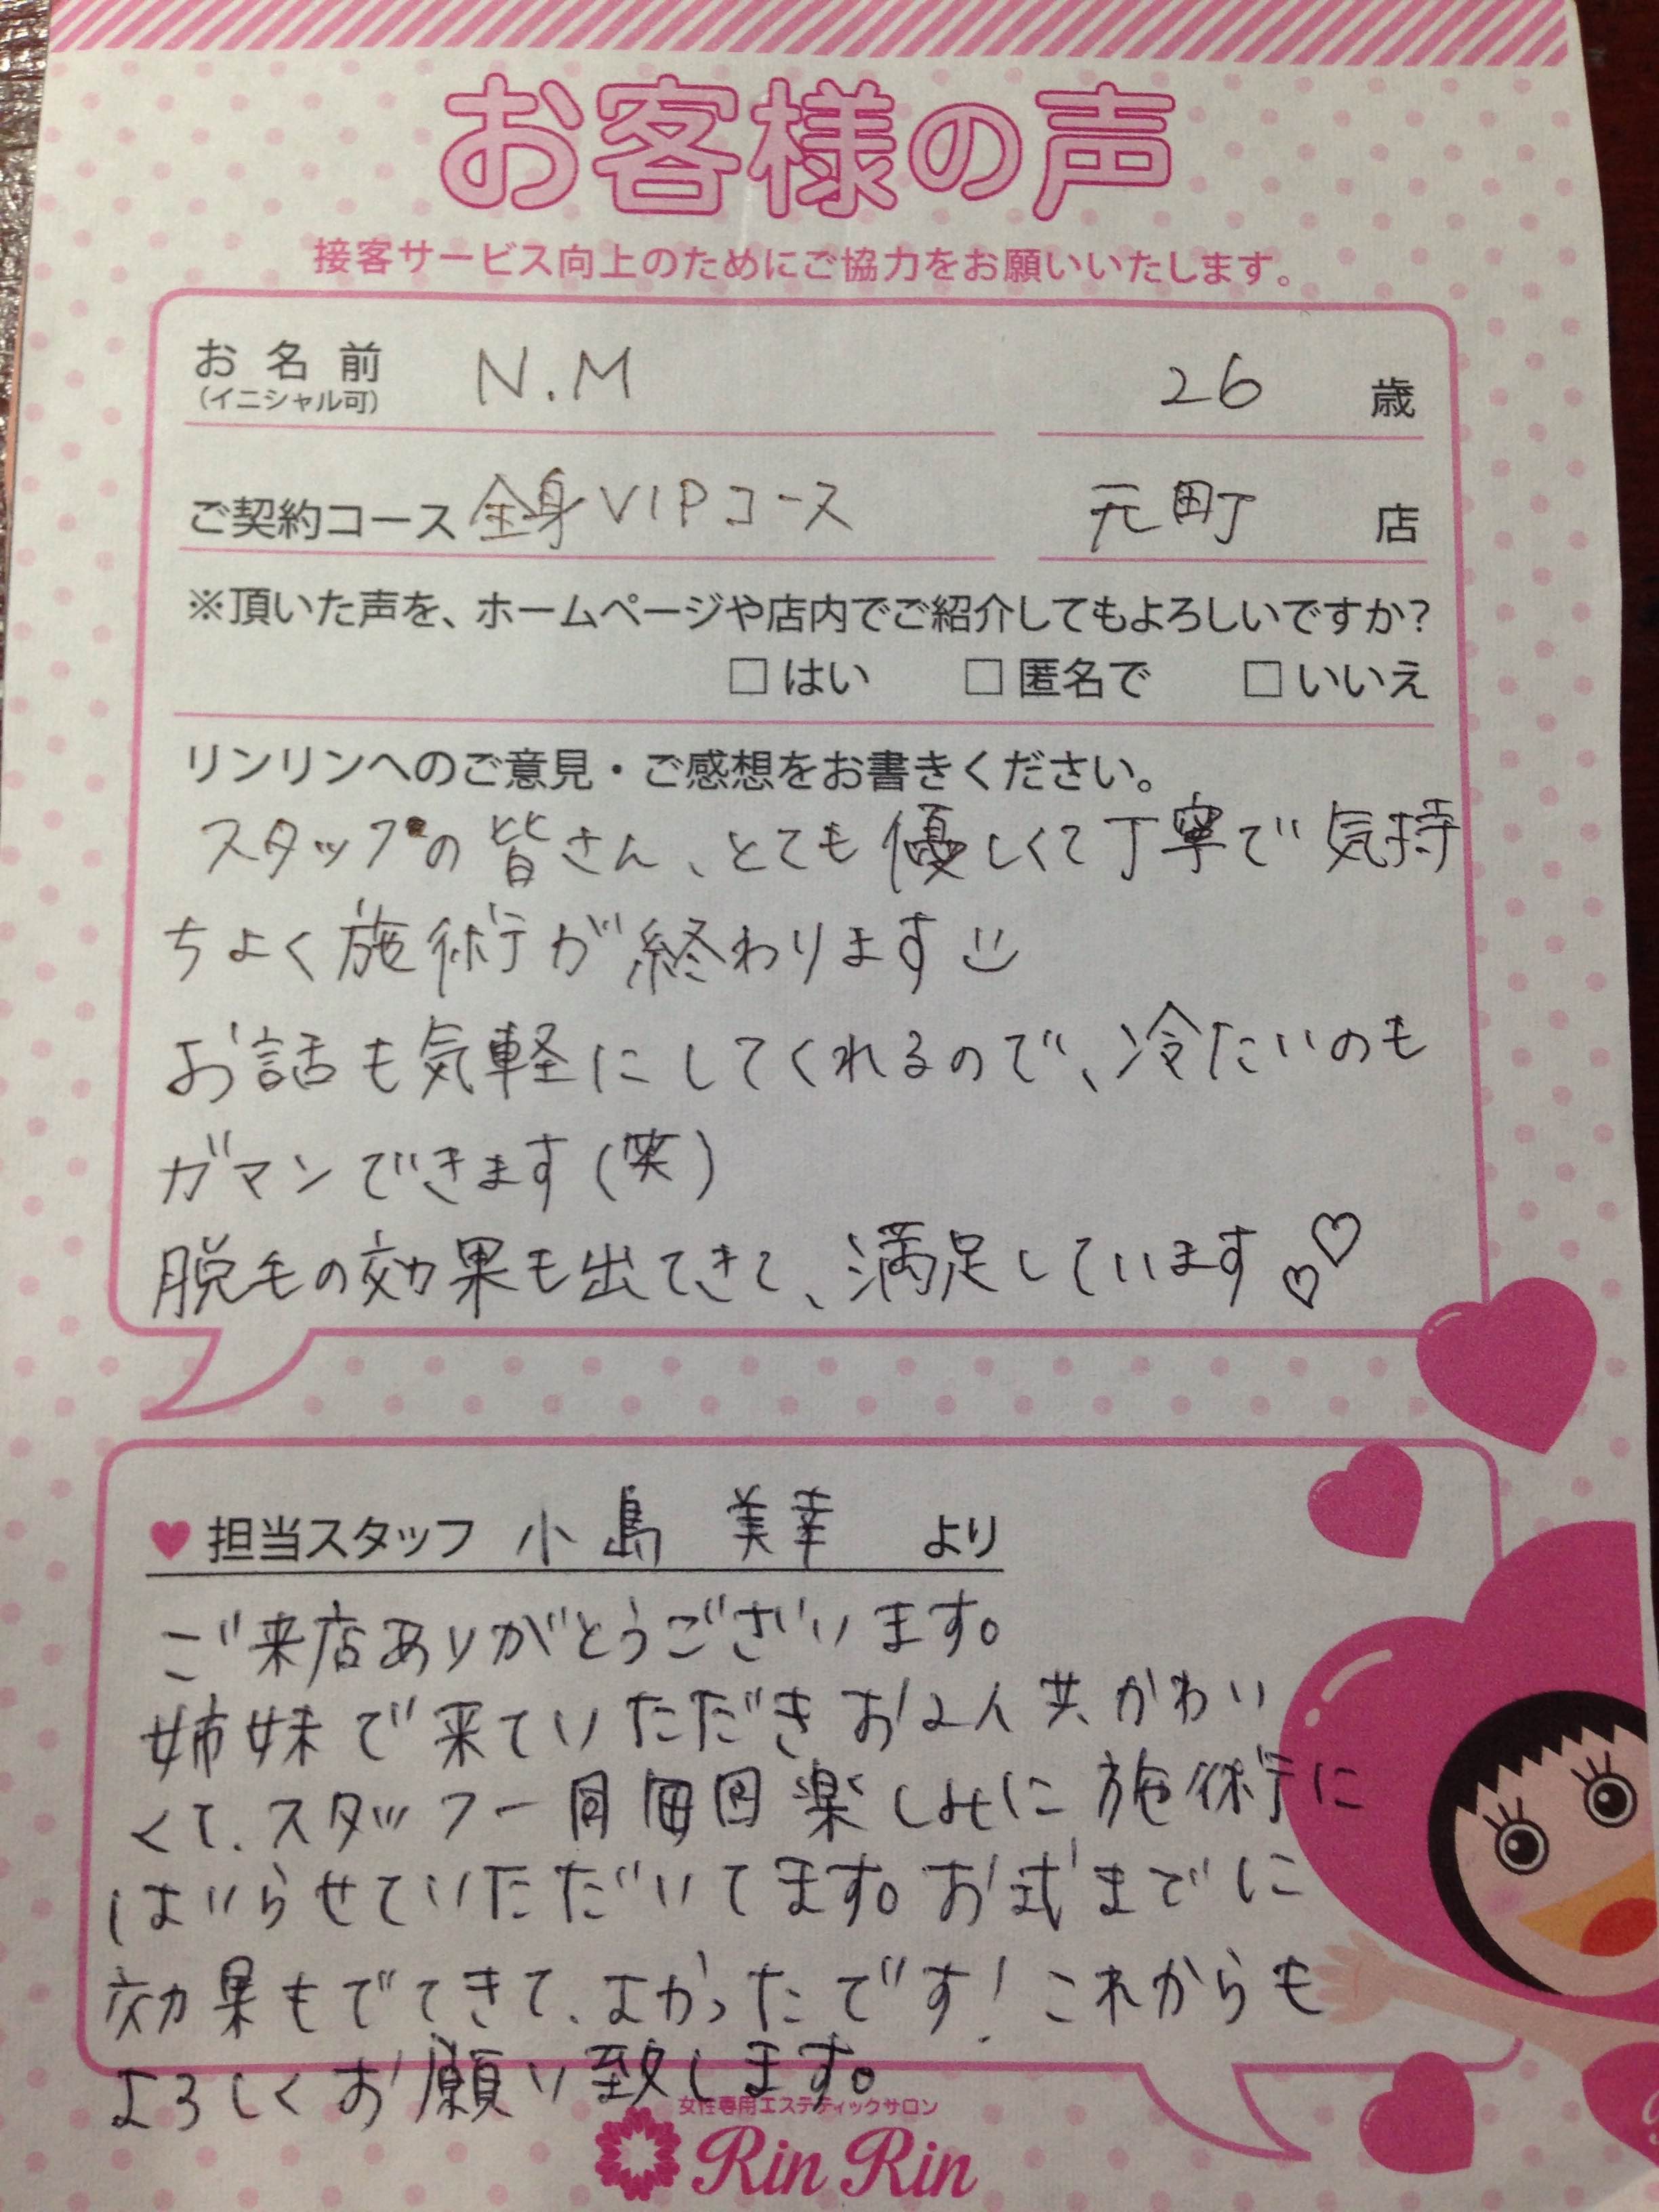 お客様の声
接客サービス向上のためにご協力をお願いいたします。
お名前 N.M 26 歳
(イニシャル可)
ご契約コース 全身VIPコース 元町 店
※頂いた声を、ホームページや店内でご紹介してもよろしいですか?
□ はい □ 匿名で □ いいえ
リンリンへのご意見・ご感想をお書きください。
スタッフの皆さん、とても優しくて丁寧で気持
ちよく施術が終わります
お話も気軽にしてくれるので、冷たいのも
ガマンできます(笑)
脱毛の効果も出てきて、満足しています♡♡
♥担当スタッフ 小島 美幸 より
ご来店ありがとうございます。
姉妹で来ていただきお2人共かわい
くて、スタッフ一同毎回楽しみに施術に
はいらせていただいてます。お式までに
効果もでてきて、よかったです!これからも
よろしくお願い致します。
女性専用エステティックサロン
Rin Rin